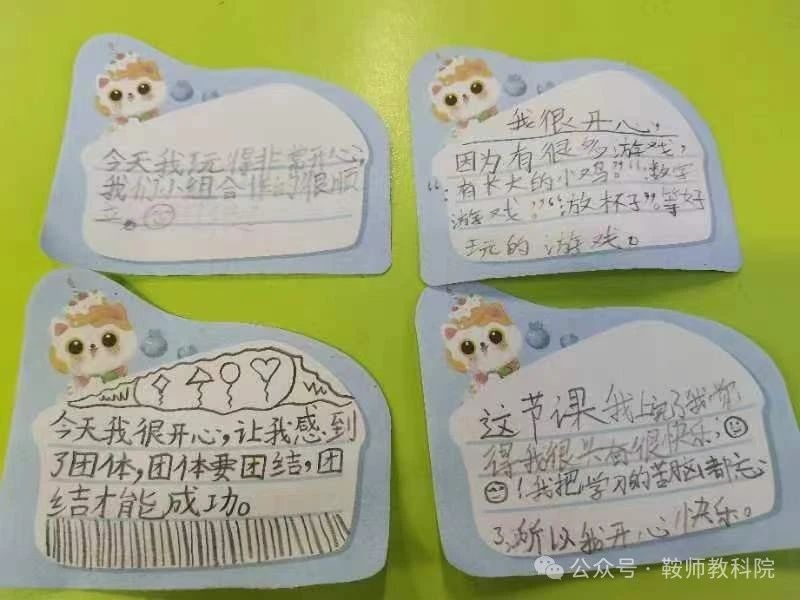 今天我玩得非常开心,
我们小组合作的很顺
立。
我很开心,
因为有很多游戏,
“有长大的小鸡”“数字
游戏”“放杯子”。等好
玩的游戏。
今天我很开心,让我感到
了团体,团体要团结,团
结才能成功。
这节课我上完了我觉
得我很兴奋很快乐,
!我把学习的苦脑都忘
了,所以我开心快乐。
公众号·鞍师教科院